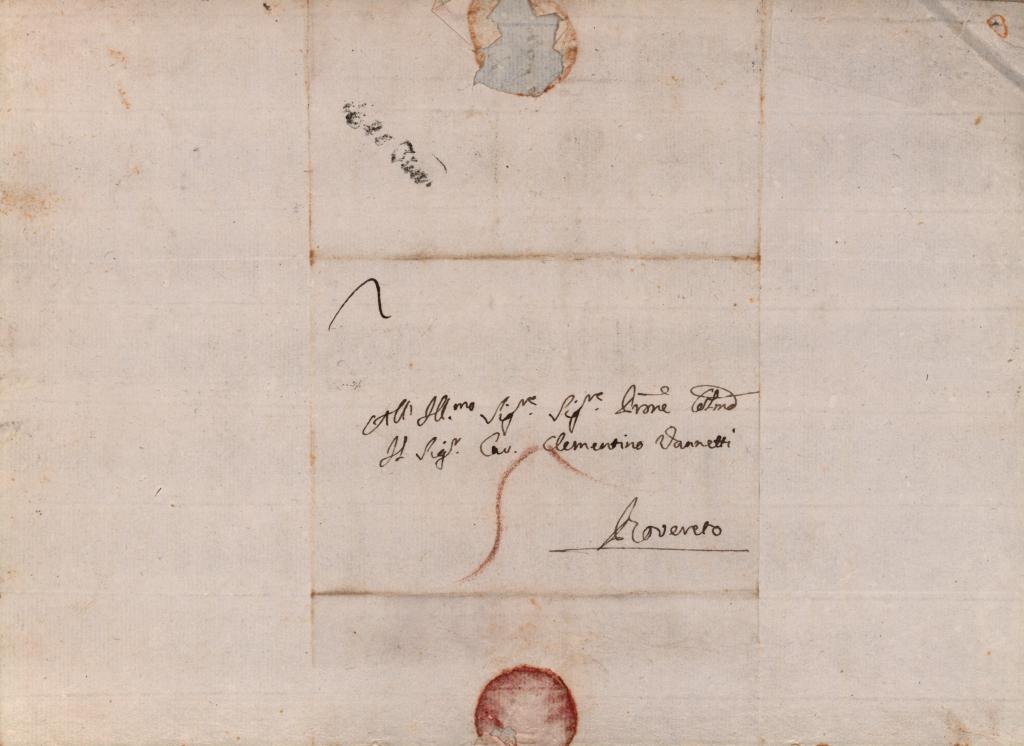 All' Ill.mo Sig.re Sig.re Prone Colmo
Il Sig.r Cav. Clementino Vannetti
Rovereto